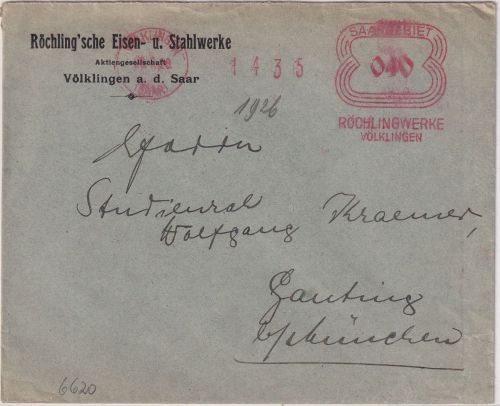 Röchling'sche Eisen- u. Stahlwerke
Aktiengesellschaft
Völklingen a. d. Saar
(SAAR)
1435
SAARGEBIET
040
RÖCHLINGWERKE
VÖLKLINGEN
1926
Studienrat
Wolfgang Kraemer,
Gauting
b/München
6620